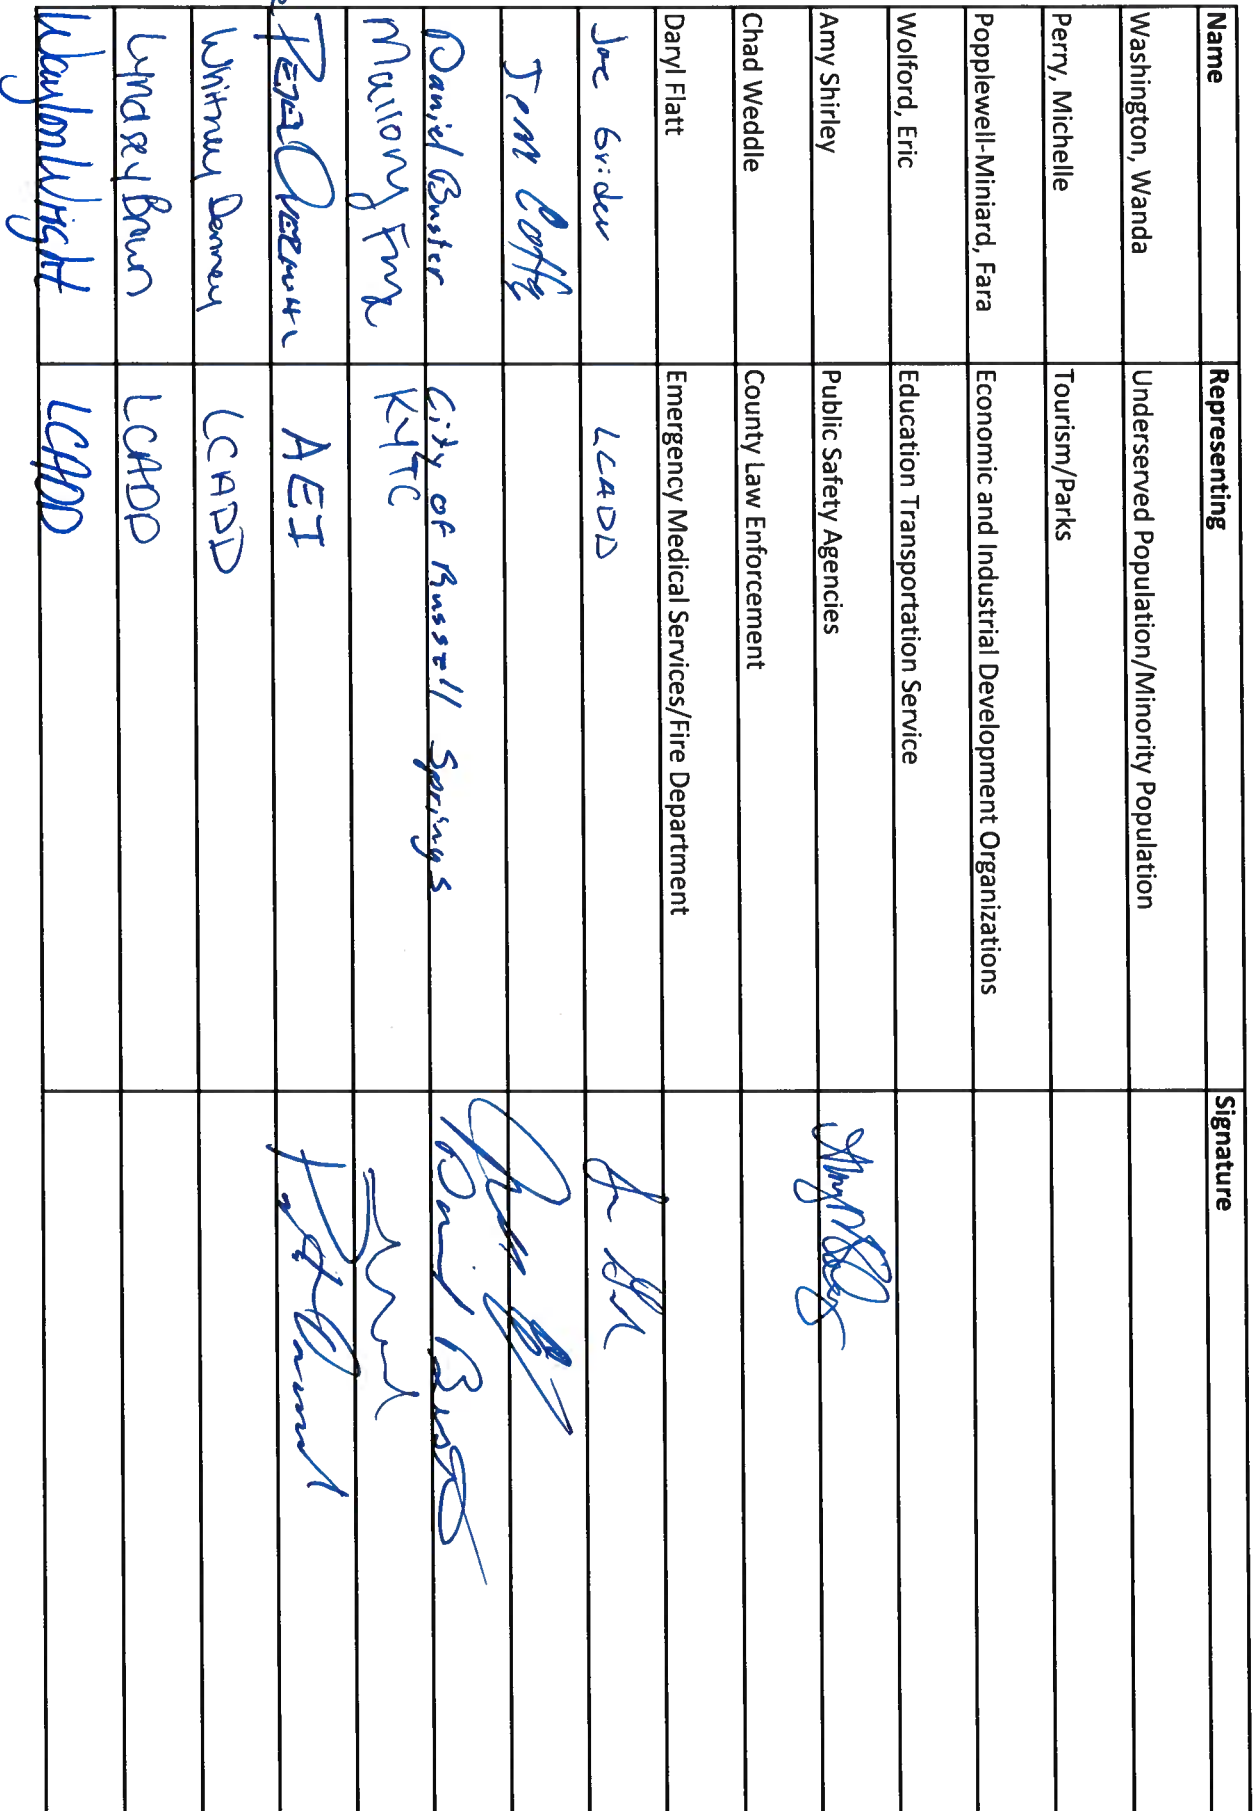 Name Representing Signature
Washington, Wanda Underserved Population/Minority Population
Perry, Michelle Tourism/Parks
Popplewell-Miniard, Fara Economic and Industrial Development Organizations
Wolford, Eric Education Transportation Service
Amy Shirley Public Safety Agencies
Chad Weddle County Law Enforcement
Daryl Flatt Emergency Medical Services/Fire Department
Joe Grider LCADD
Daniel Buster City of Russell Springs Daniel
Mallory KYTC
AEI
Whitney LCADD
Lyndsey LCADD
Waylon Wright LCADD